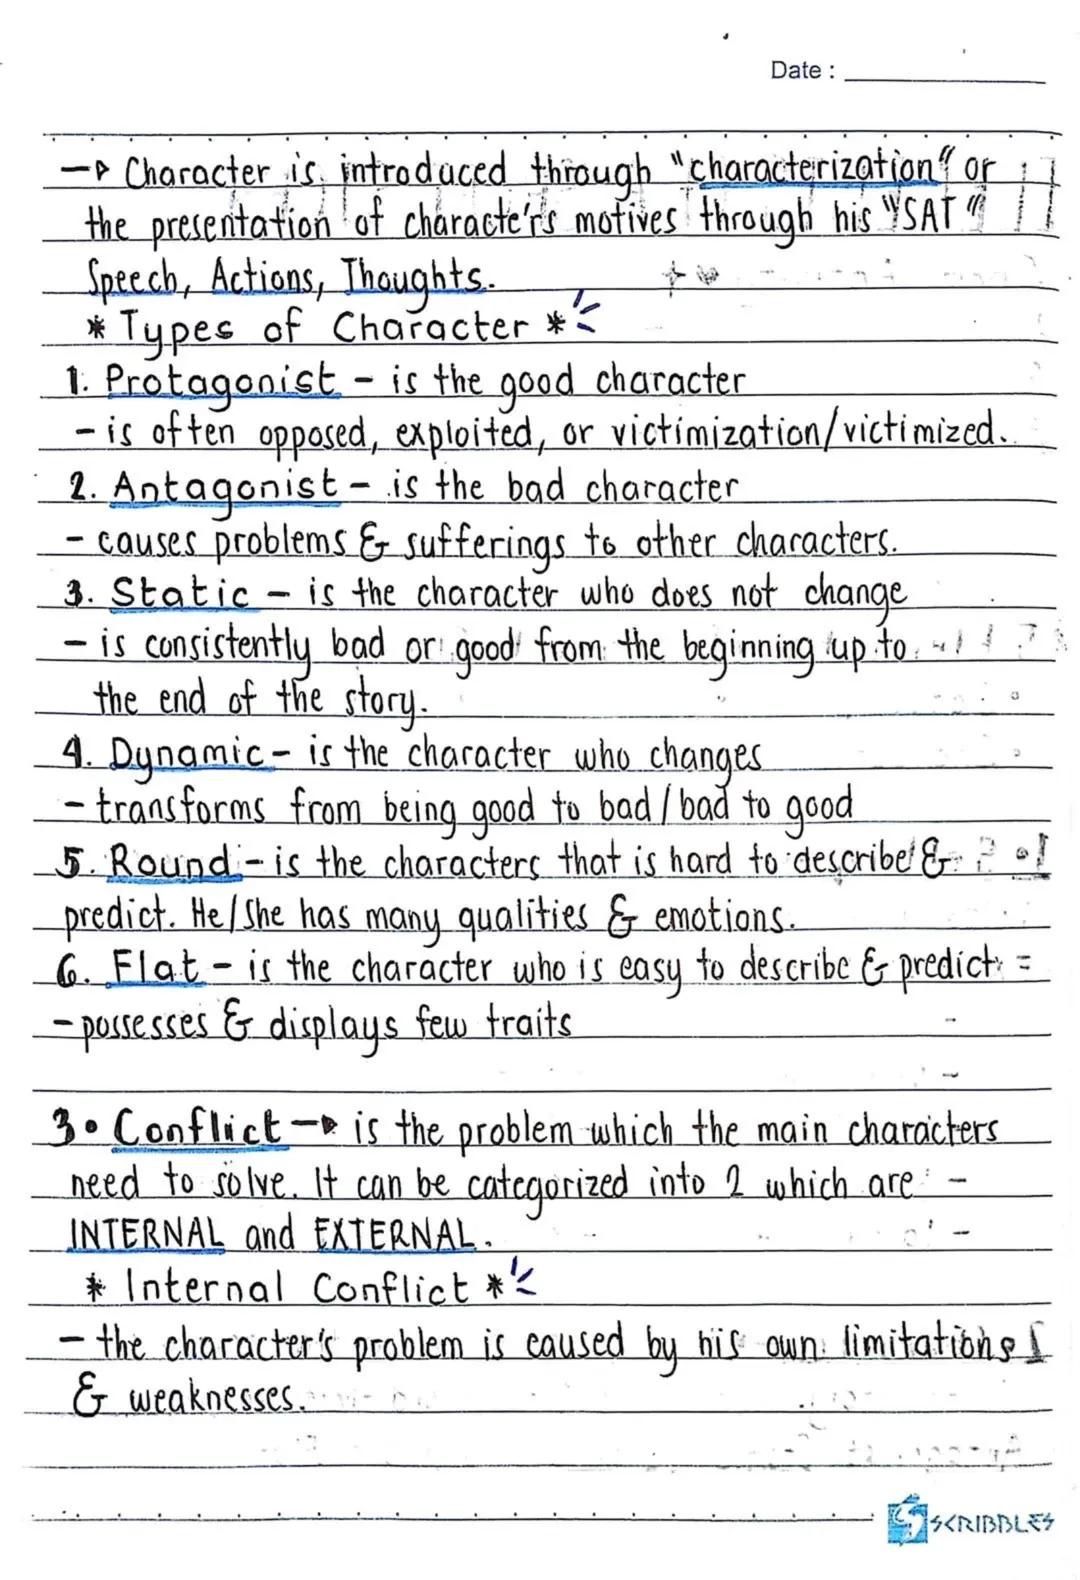 Date :
→ Character is introduced through "characterization" or
the presentation of characte'r's motives through his "SAT"
Speech, Actions, Thoughts.
* Types of Character *
1. Protagonist - is the good character
- is often opposed, exploited, or victimization/victimized.
2. Antagonist - is the bad character
- causes problems & sufferings to other characters.
3. Static - is the character who does not change
- is consistently bad or good from the beginning up to
the end of the story.
4. Dynamic - is the character who changes
- transforms from being good to bad / bad to good
5. Round - is the characters that is hard to describe &
predict. He/She has many qualities & emotions.
6. Flat - is the character who is easy to describe & predict
- possesses & displays few traits
3. Conflict → is the problem which the main characters
need to solve. It can be categorized into 2 which are
INTERNAL and EXTERNAL.
* Internal Conflict *
- the character's problem is caused by his own limitations
& weaknesses.
SCRIBBLES